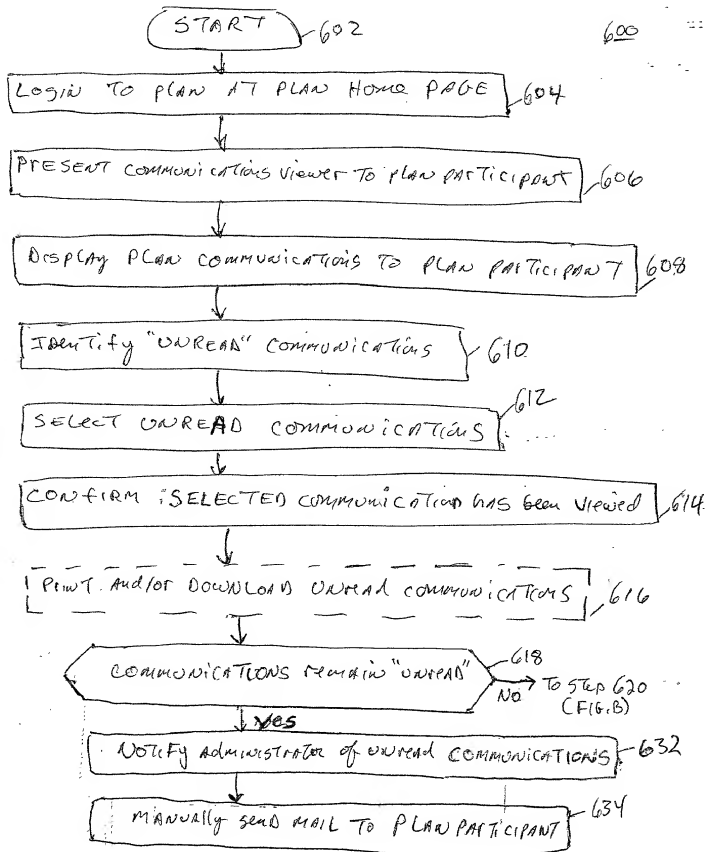 START 602 600
LOGIN TO PLAN AT PLAN HOME PAGE 604
PRESENT COMMUNICATIONS VIEWER TO PLAN PARTICIPANT 606
DISPLAY PLAN COMMUNICATIONS TO PLAN PARTICIPANT 608
IDENTIFY "UNREAD" COMMUNICATIONS 610
612
SELECT UNREAD COMMUNICATIONS
CONFIRM SELECTED COMMUNICATION HAS been viewed 614
PRINT And/or DOWNLOAD UNREAD COMMUNICATIONS 616
618
COMMUNICATIONS remain "UNREAD"
NO TO STEP 620
(FIG.B)
yes
NOTIFY Administrator of UNREAD COMMUNICATIONS 632
634
MANUALLY SEND MAIL TO PLAN PARTICIPANT